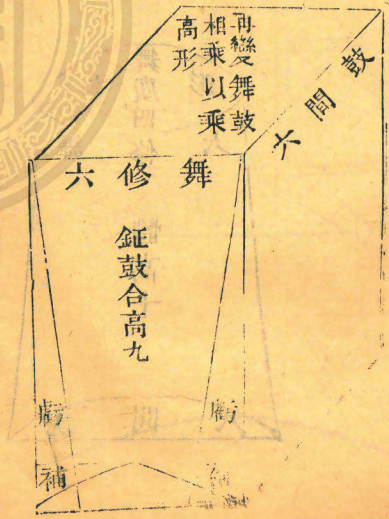 再變舞鼓
相乘以乘
高形
鼓間六
舞修六
鉦鼓合高九
虧
虧
補